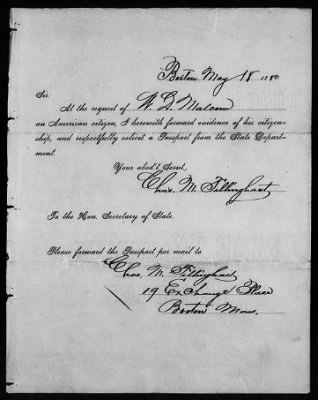 Boston, May 18 1880
Sir:
At the request of W. G. Malcom
an American citizen, I herewith forward evidence of his citizen-
ship, and respectfully solicit a Passport from the State Depart-
ment.
Your obed't Servt,
Chas. M. Tillinghast
To the Hon. Secretary of State.
Please forward the Passport per mail to
Chas. M. Tillinghast
19 Exchange Place
Boston Mass.